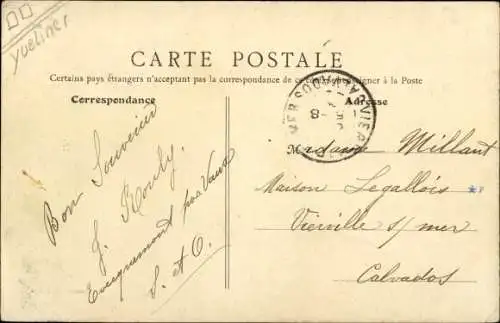 Yvelines
CARTE POSTALE
Certains pays étrangers n'acceptent pas la correspondance de ce côté se renseigner à la Poste
Correspondance
Adresse
Bon Souvenir
J. Rouly
Evecquemont par Vaux
S. et O.
VIERVILLE S MER
CALVADOS
Madame Millant
Maison Legallois
Vierville s/mer
Calvados